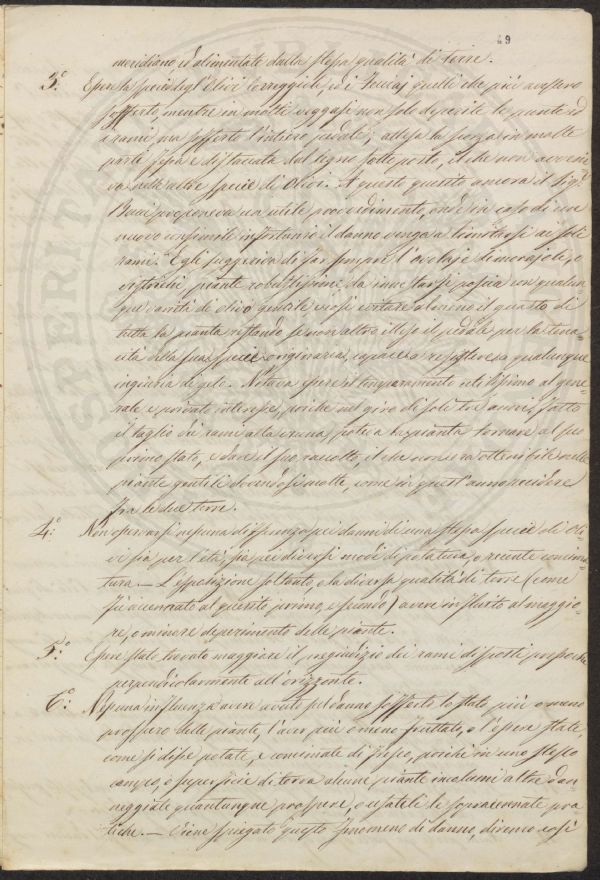 49
meridiano ed alimentate dalla stessa qualità di terre.
3.° Essere la specie degl'Olivi Correggioli, ed i quelli che più avessero
sofferto mentre in molti veggasi non solo deperite le piante ed
i rami, ma sofferto l'intiero pedale, attesa la scorza in molte
parti fessa e distaccata dal legno sotto posto, il che non avveni
va nelle altre specie di Olivi. A questo quesito ancora il Sig.
proponeva un utile provvedimento, onde in caso di un
nuovo consimile infortunio il danno venga a limitarsi ai soli
rami. Egli suggeriva di far sempre l' e di morajole, o
piante robustissime da innestarsi poscia con qualun
que varietà di olivo gentile e così evitare almeno il guasto di
tutta la pianta restando se non altro illeso il pedale per la tena
cità della sua specie originaria, capace a resistere a qualunque
ingiuria di gelo. Notava essere il temperamento utilissimo al gene=
rale e privato interesse, poiché nel giro di soli tre anni, fatto
il taglio dei rami alla pianta tornare al suo
primo stato, e dare il suo raccolto, il che non era ottenibile nelle
piante gentili dovendosi molte, come in quest'anno recidere
fra le due terre.
4.° Non osservarsi nessuna differenza pei danni di una stessa specie di Oli
vi sia per l'età, sia pei diversi modi di potatura, o recente concima
tura. — L'esposizione soltanto, e la diversa qualità di terre (come
fu accennato al quesito primo, essendo) avere influito al maggio=
re, o minore deperimento delle piante.
5.° Essere stato trovato maggiore il pregiudizio dei rami disposti pressoché
perpendicolarmente all'orizzonte.
6.° Nessuna influenza avere avuto pel danno sofferto lo stato più o meno
prospero delle piante, l'aver più o meno fruttato, o l'essere state,
come si disse potate, e concimate di fresco, poiché in uno stesso
campo, o superficie di terra alcune piante incolumi altre dan
neggiate quantunque prospere, o usatele le sopracennate pra
tiche. — Viene spiegato questo fenomeno di danno, diremo così